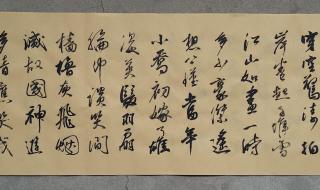 穿空驚濤拍
岸卷起千堆雪
江山如畫一時
多少豪傑遙
想公瑾當年
小喬初嫁了雄
姿英發羽扇
綸巾談笑間
檣櫓灰飛煙
滅故國神遊
多情應笑我